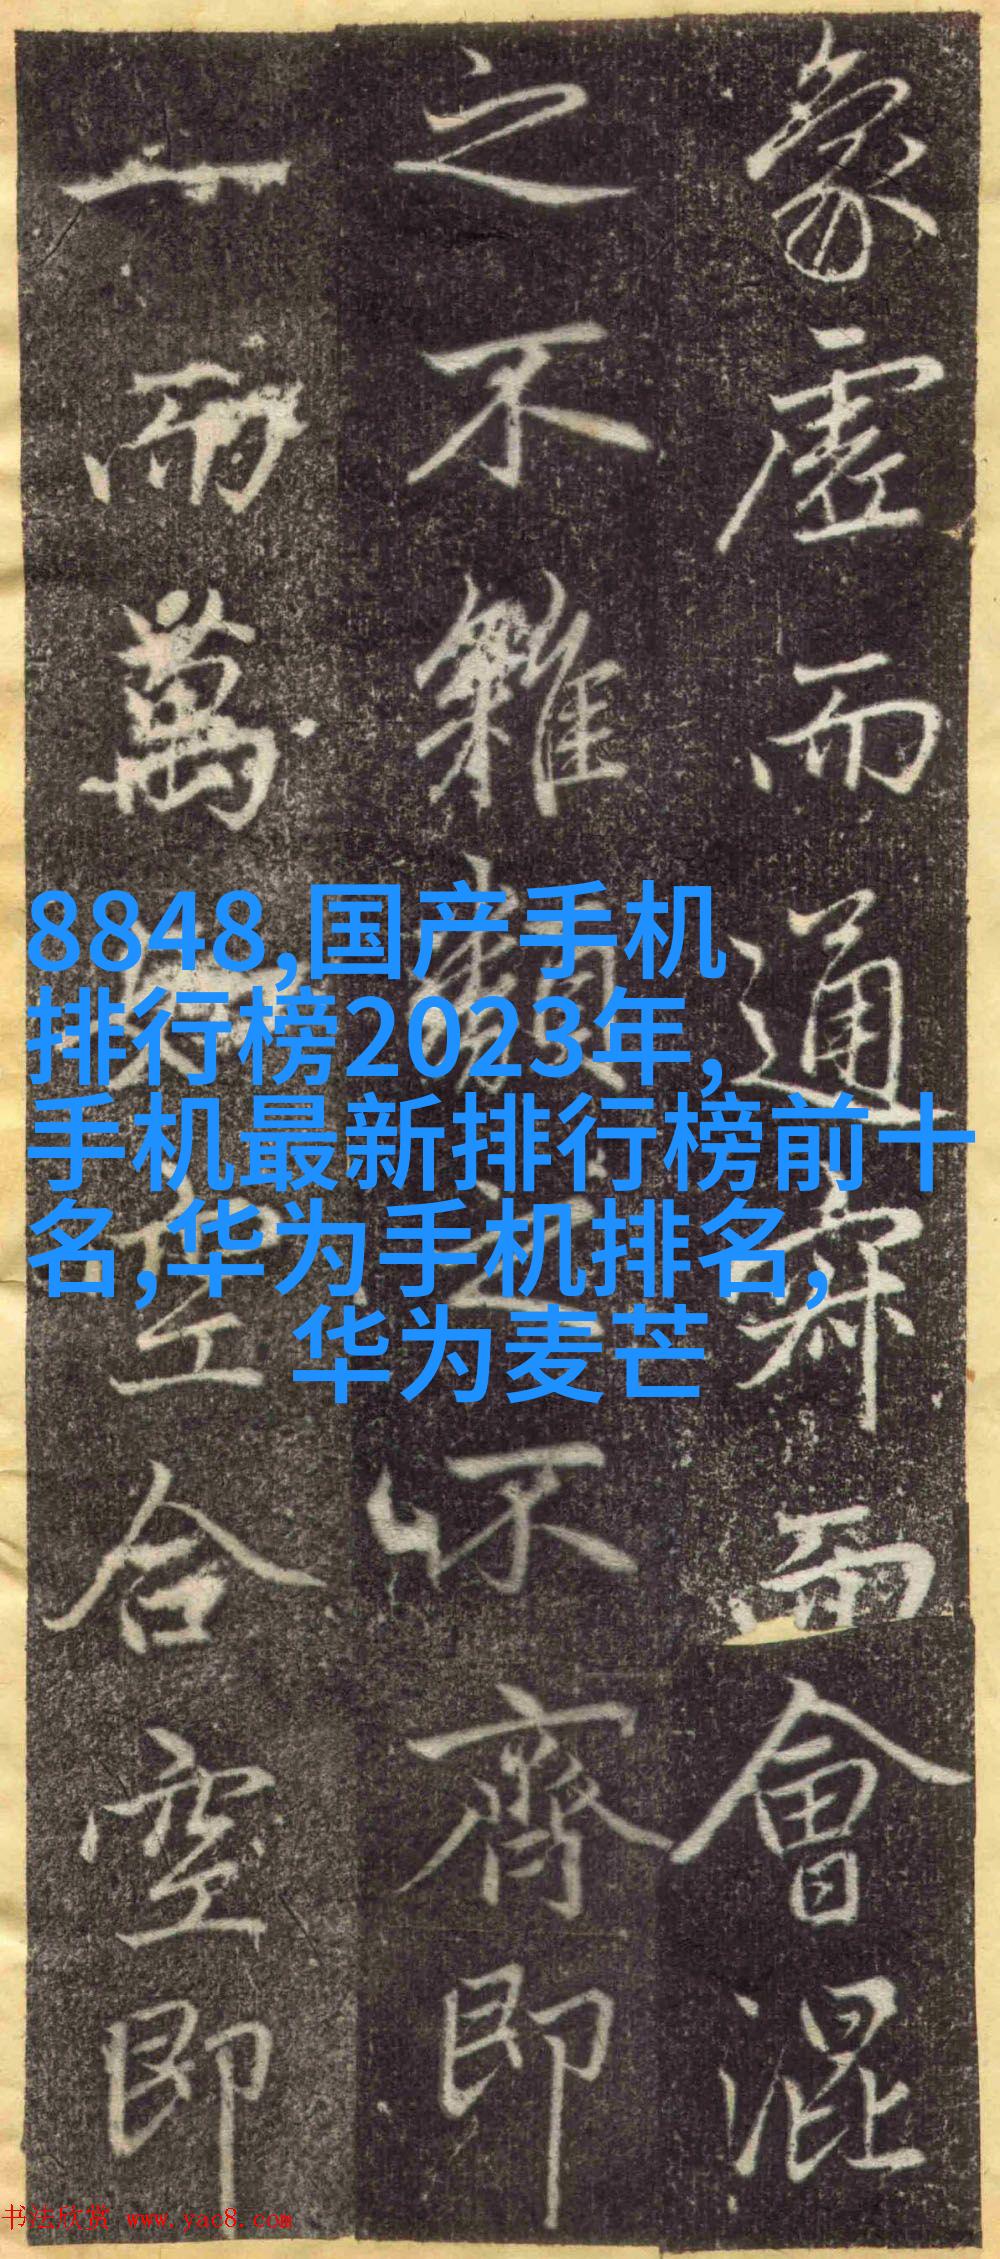 象虛而通寂而會混
之不雜之不齊即
一而萬空合空即
8848,国产手机
排行榜2023年,
手机最新排行榜前十
名,华为手机排名,
华为麦芒
书法欣赏 www.yac8.com